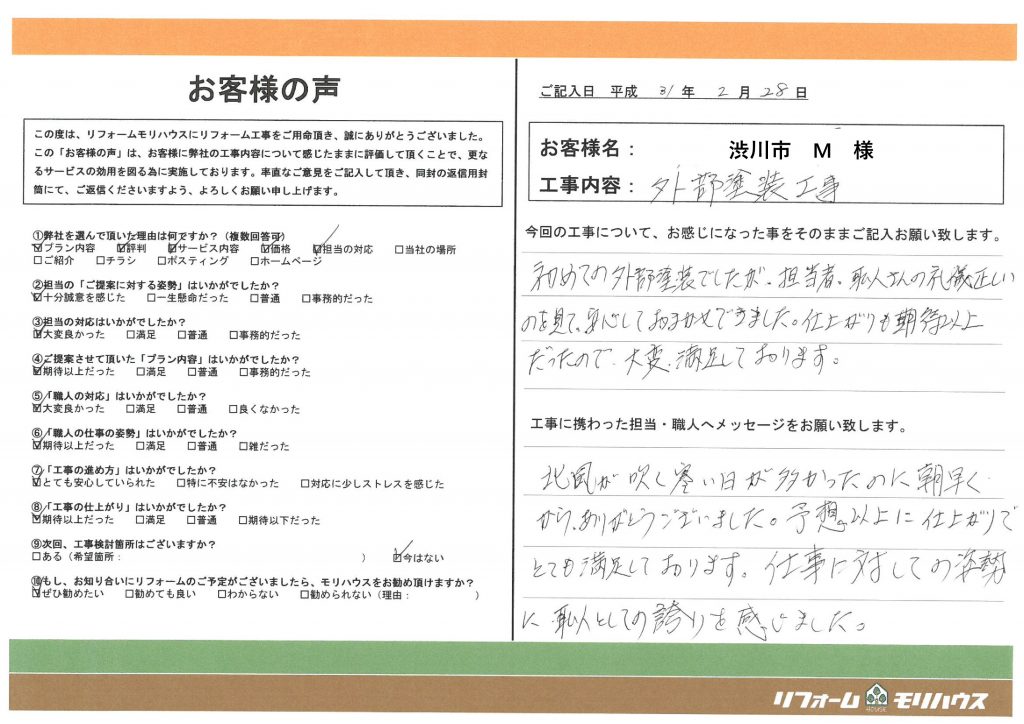 お客様の声
この度は、リフォームモリハウスにリフォーム工事をご用命頂き、誠にありがとうございました。
この「お客様の声」は、お客様に弊社の工事内容について感じたままに評価して頂くことで、更な
るサービスの効用を図る為に実施しております。率直なご意見をご記入して頂き、同封の返信用封
筒にて、ご返信くださいますよう、よろしくお願い申し上げます。
①弊社を選んで頂いた理由は何ですか？（複数回答可）
☑プラン内容 ☑評判 ☑サービス内容 ☑価格 ☑担当の対応 □当社の場所
□ご紹介 □チラシ □ポスティング □ホームページ
②担当の「ご提案に対する姿勢」はいかがでしたか？
☑十分誠意を感じた □一生懸命だった □普通 □事務的だった
③担当の対応はいかがでしたか？
☑大変良かった □満足 □普通 □事務的だった
④ご提案させて頂いた「プラン内容」はいかがでしたか？
☑期待以上だった □満足 □普通 □事務的だった
⑤「職人の対応」はいかがでしたか？
☑大変良かった □満足 □普通 □良くなかった
⑥「職人の仕事の姿勢」はいかがでしたか？
☑期待以上だった □満足 □普通 □雑だった
⑦「工事の進め方」はいかがでしたか？
☑とても安心していられた □特に不安はなかった □対応に少しストレスを感じた
⑧「工事の仕上がり」はいかがでしたか？
☑期待以上だった □満足 □普通 □期待以下だった
⑨次回、工事検討箇所はございますか？
□ある（希望箇所： ） ☑今はない
⑩もし、お知り合いにリフォームのご予定がございましたら、モリハウスをお勧め頂けますか？
☑ぜひ勧めたい □勧めても良い □わからない □勧められない（理由： ）
ご記入日 平成 31 年 2 月 28 日
お客様名： 渋川市 M 様
工事内容： 外部塗装工事
今回の工事について、お感じになった事をそのままご記入お願い致します。
初めての外部塗装でしたが、担当者、職人さんの礼儀正しい
のを見て、安心しておまかせできました。仕上がりも期待以上
だったので、大変、満足しております。
工事に携わった担当・職人へメッセージをお願い致します。
北風が吹く寒い日が多かったのに朝早く
から、ありがとうございました。予想以上に仕上がりで
とても満足しております。仕事に対しての姿勢
に、職人としての誇りを感じました。
リフォーム HOUSE モリハウス